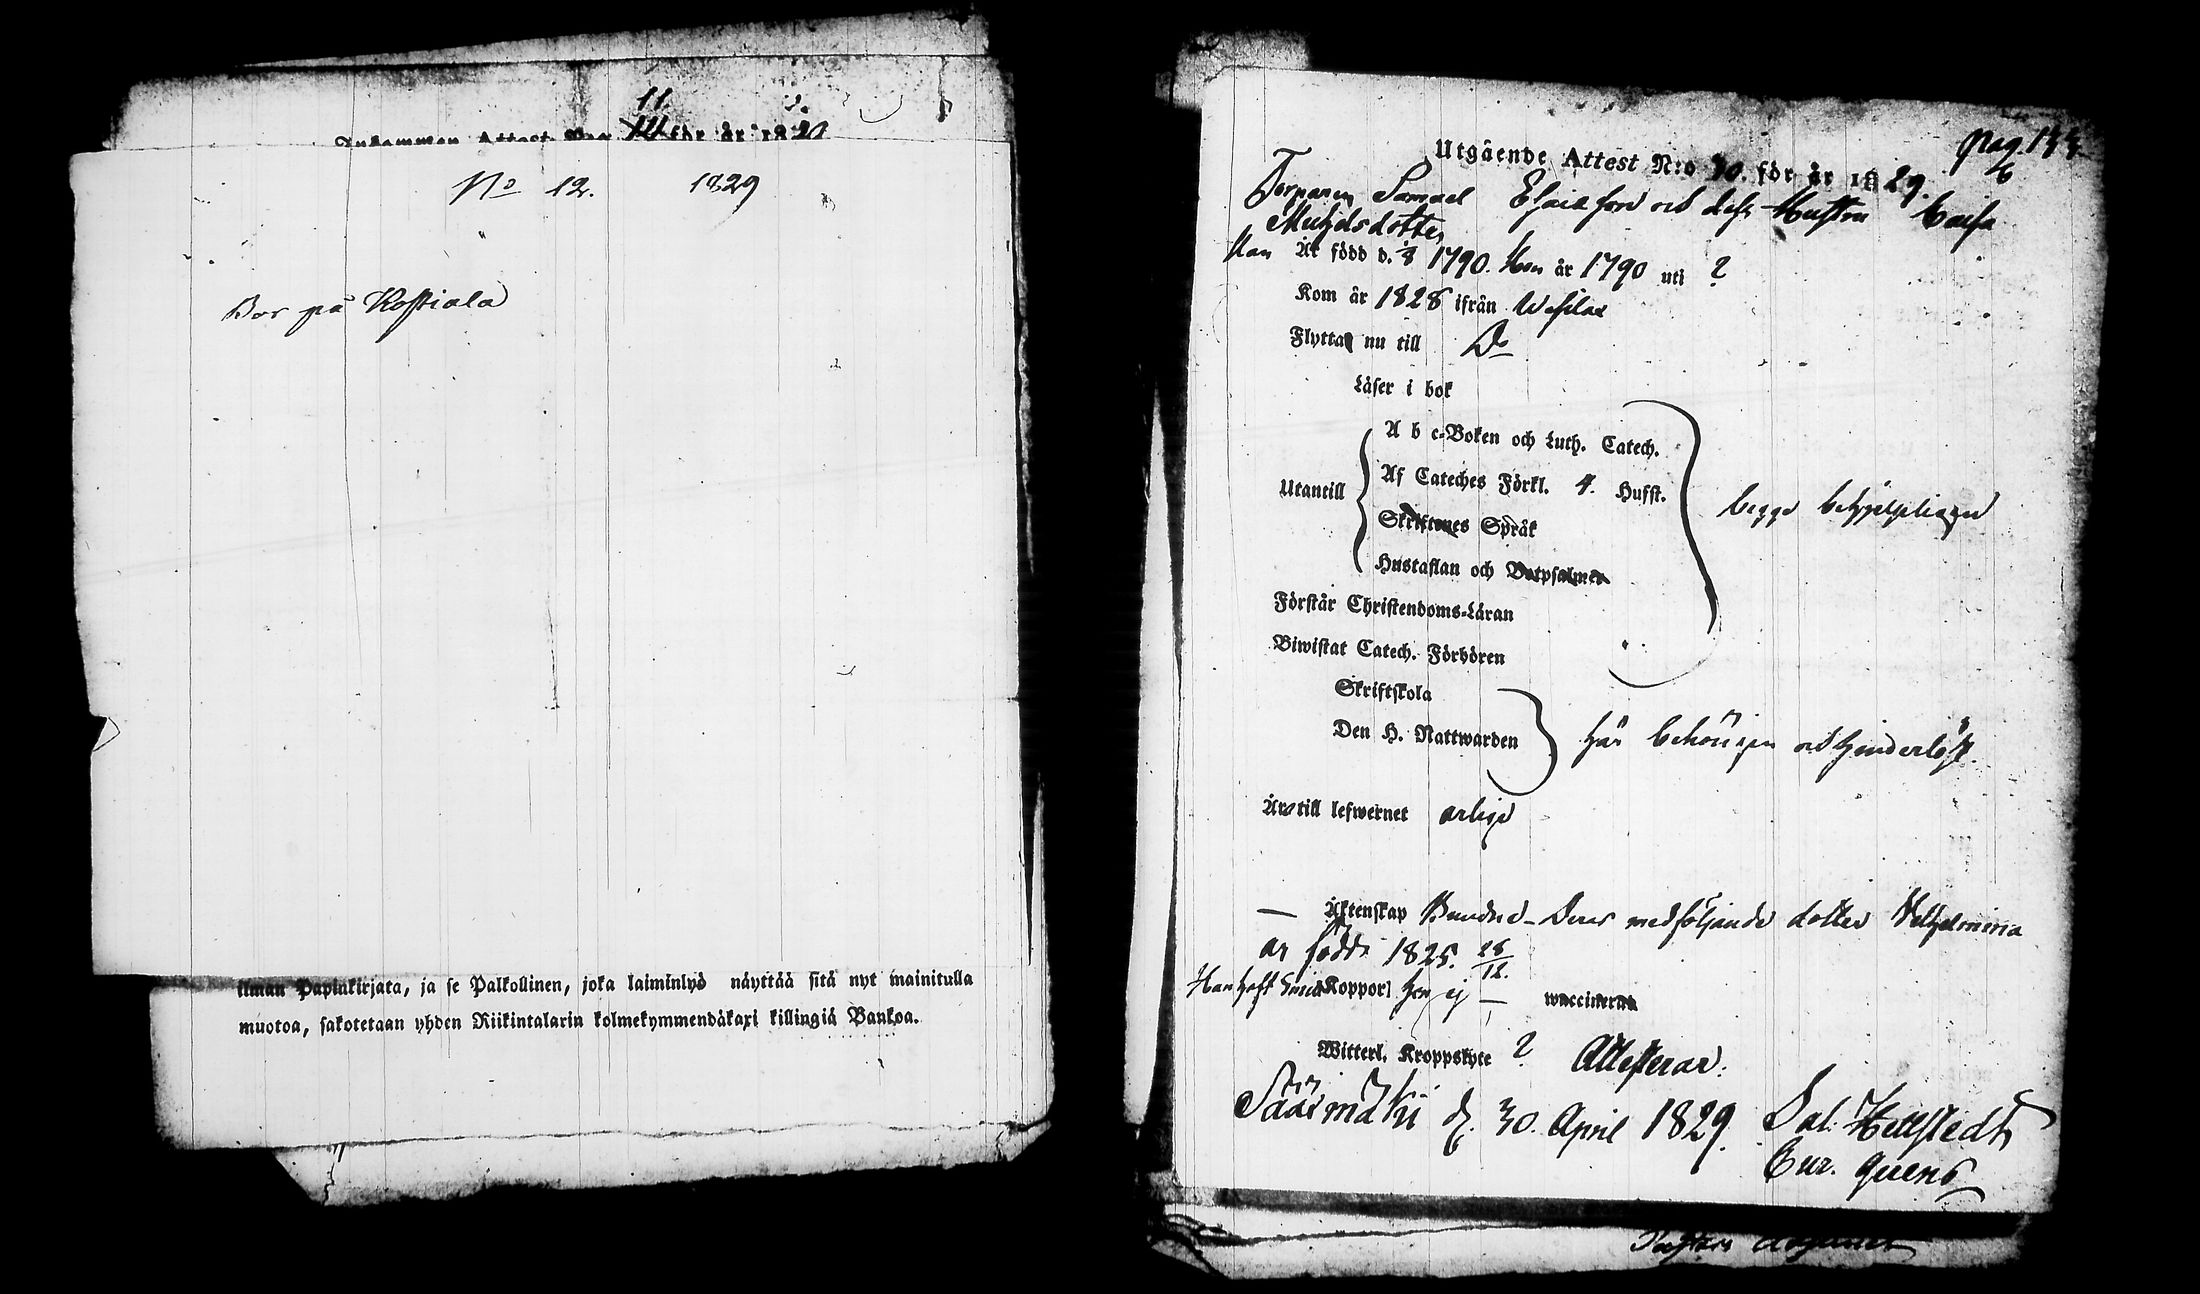 11
Inkommen Attest N:o för år 182
No 12. 1829
Bor på Koskiala
ilman Papinkirjata, ja se Palkollinen, joka laiminlyö näyttää sitä nyt mainitulla
muotoa, sakotetaan yhden Riikintalarin kolmekymmendäkaxi killingiä Bankoa.
pag. 133
6
Utgående Attest N:o 30. för år 1829.
Torparen Samuel Esaiasson och dess Hustru Caisa
Michelsdotter
Han Är född d. 1790. Hon år 1790 uti ?
Kom år 1828 ifrån Wesilax
Flytta nu till Do
Läser i bok
A b c-Boken och Luth. Catech.
Utantill Af Cateches Förkl. 4. Hufst. begge behjelpligen
Skriftenes Språk
Hustaflan och Botpsalmer
Förstår Christendoms-Läran
Biwistat Catech. Förhören
Skriftskola
Den H. Nattwarden här behörigen och hinderlöst.
Äro till lefwernet ärlige
— Äktenskap Bundne - Deras medföljande dotter Wilhelmina
är född 1825. 28/12.
Han haft Koppor, hon ej — waccinerad
Witterl. Kroppslyte ? Attesterar:
Sääxmäki d. 30. April 1829. Sal: Hellstedt
Cur. gerens